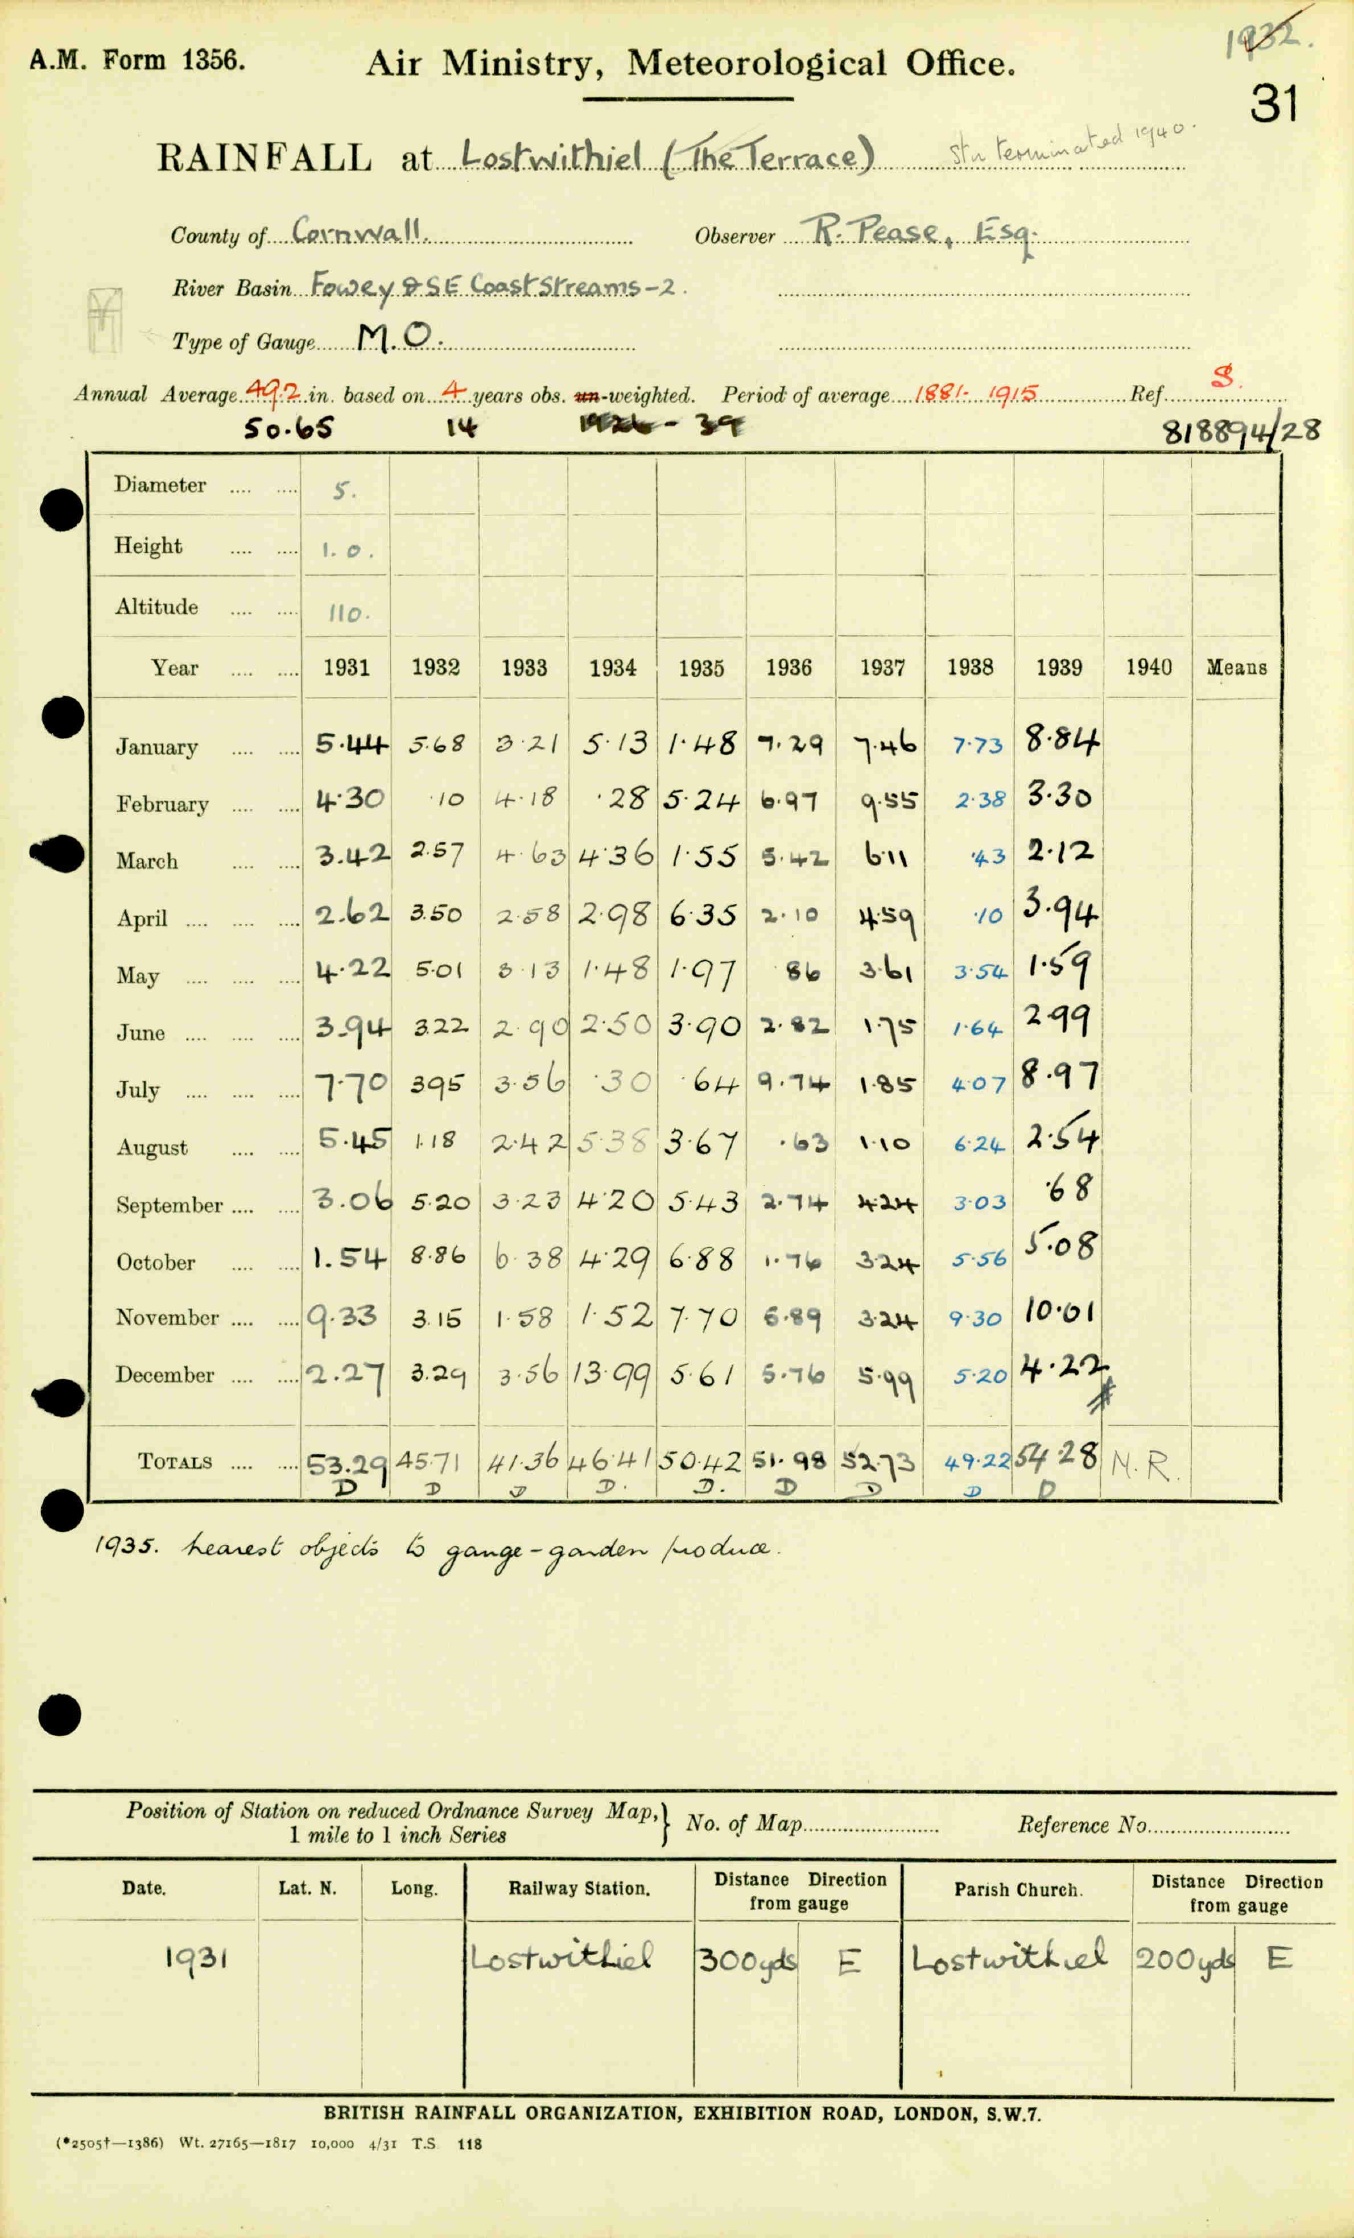 1932.
A.M. Form 1356.
Air Ministry, Meteorological Office.
31
RAINFALL at Lostwithiel (The Terrace) Stn terminated 1940.
County of Cornwall. Observer R. Pease, Esq.
River Basin Fowey & SE Coast Streams-2.
Type of Gauge M.O.
Annual Average 49.2 in. based on 4 years obs. un-weighted. Period of average 1881- 1915 Ref. S.
50.65 14 1926 - 39 818894/28
Diameter .... .... 5.
Height .... .... 1.0.
Altitude .... .... 110.
Year .... .... 1931 1932 1933 1934 1935 1936 1937 1938 1939 1940 Means
January .... .... 5.44 5.68 3.21 5.13 1.48 7.29 7.46 7.73 8.84
February .... .... 4.30 .10 4.18 .28 5.24 6.97 9.55 2.38 3.30
March .... .... 3.42 2.57 4.63 4.36 1.55 5.42 6.11 .43 2.12
April .... .... .... 2.62 3.50 2.58 2.98 6.35 2.10 4.59 .10 3.94
May .... .... .... 4.22 5.01 3.13 1.48 1.97 86 3.61 3.54 1.59
June .... .... .... 3.94 3.22 2.90 2.50 3.90 2.82 1.75 1.64 2.99
July .... .... .... 7.70 3.95 3.56 .30 .64 9.74 1.85 4.07 8.97
August .... .... 5.45 1.18 2.42 5.38 3.67 .63 1.10 6.24 2.54
September .... .... 3.06 5.20 3.23 4.20 5.43 2.74 4.24 3.03 .68
October .... .... 1.54 8.86 6.38 4.29 6.88 1.76 3.24 5.56 5.08
November .... .... 9.33 3.15 1.58 1.52 7.70 5.89 3.24 9.30 10.01
December .... .... 2.27 3.29 3.56 13.99 5.61 5.76 5.99 5.20 4.22
TOTALS .... .... 53.29 45.71 41.36 46.41 50.42 51.98 52.73 49.22 54.28 N.R.
D D D D. D. D D D D
1935. nearest objects to gauge - garden produce.
Position of Station on reduced Ordnance Survey Map,
1 mile to 1 inch Series
No. of Map Reference No.
Date. Lat. N. Long. Railway Station. Distance Direction from gauge Parish Church. Distance Direction from gauge
1931 Lostwithiel 300yds E Lostwithiel 200yds E
BRITISH RAINFALL ORGANIZATION, EXHIBITION ROAD, LONDON, S.W.7.
(*2505†—1386) Wt. 27165—1817 10,000 4/31 T.S 118